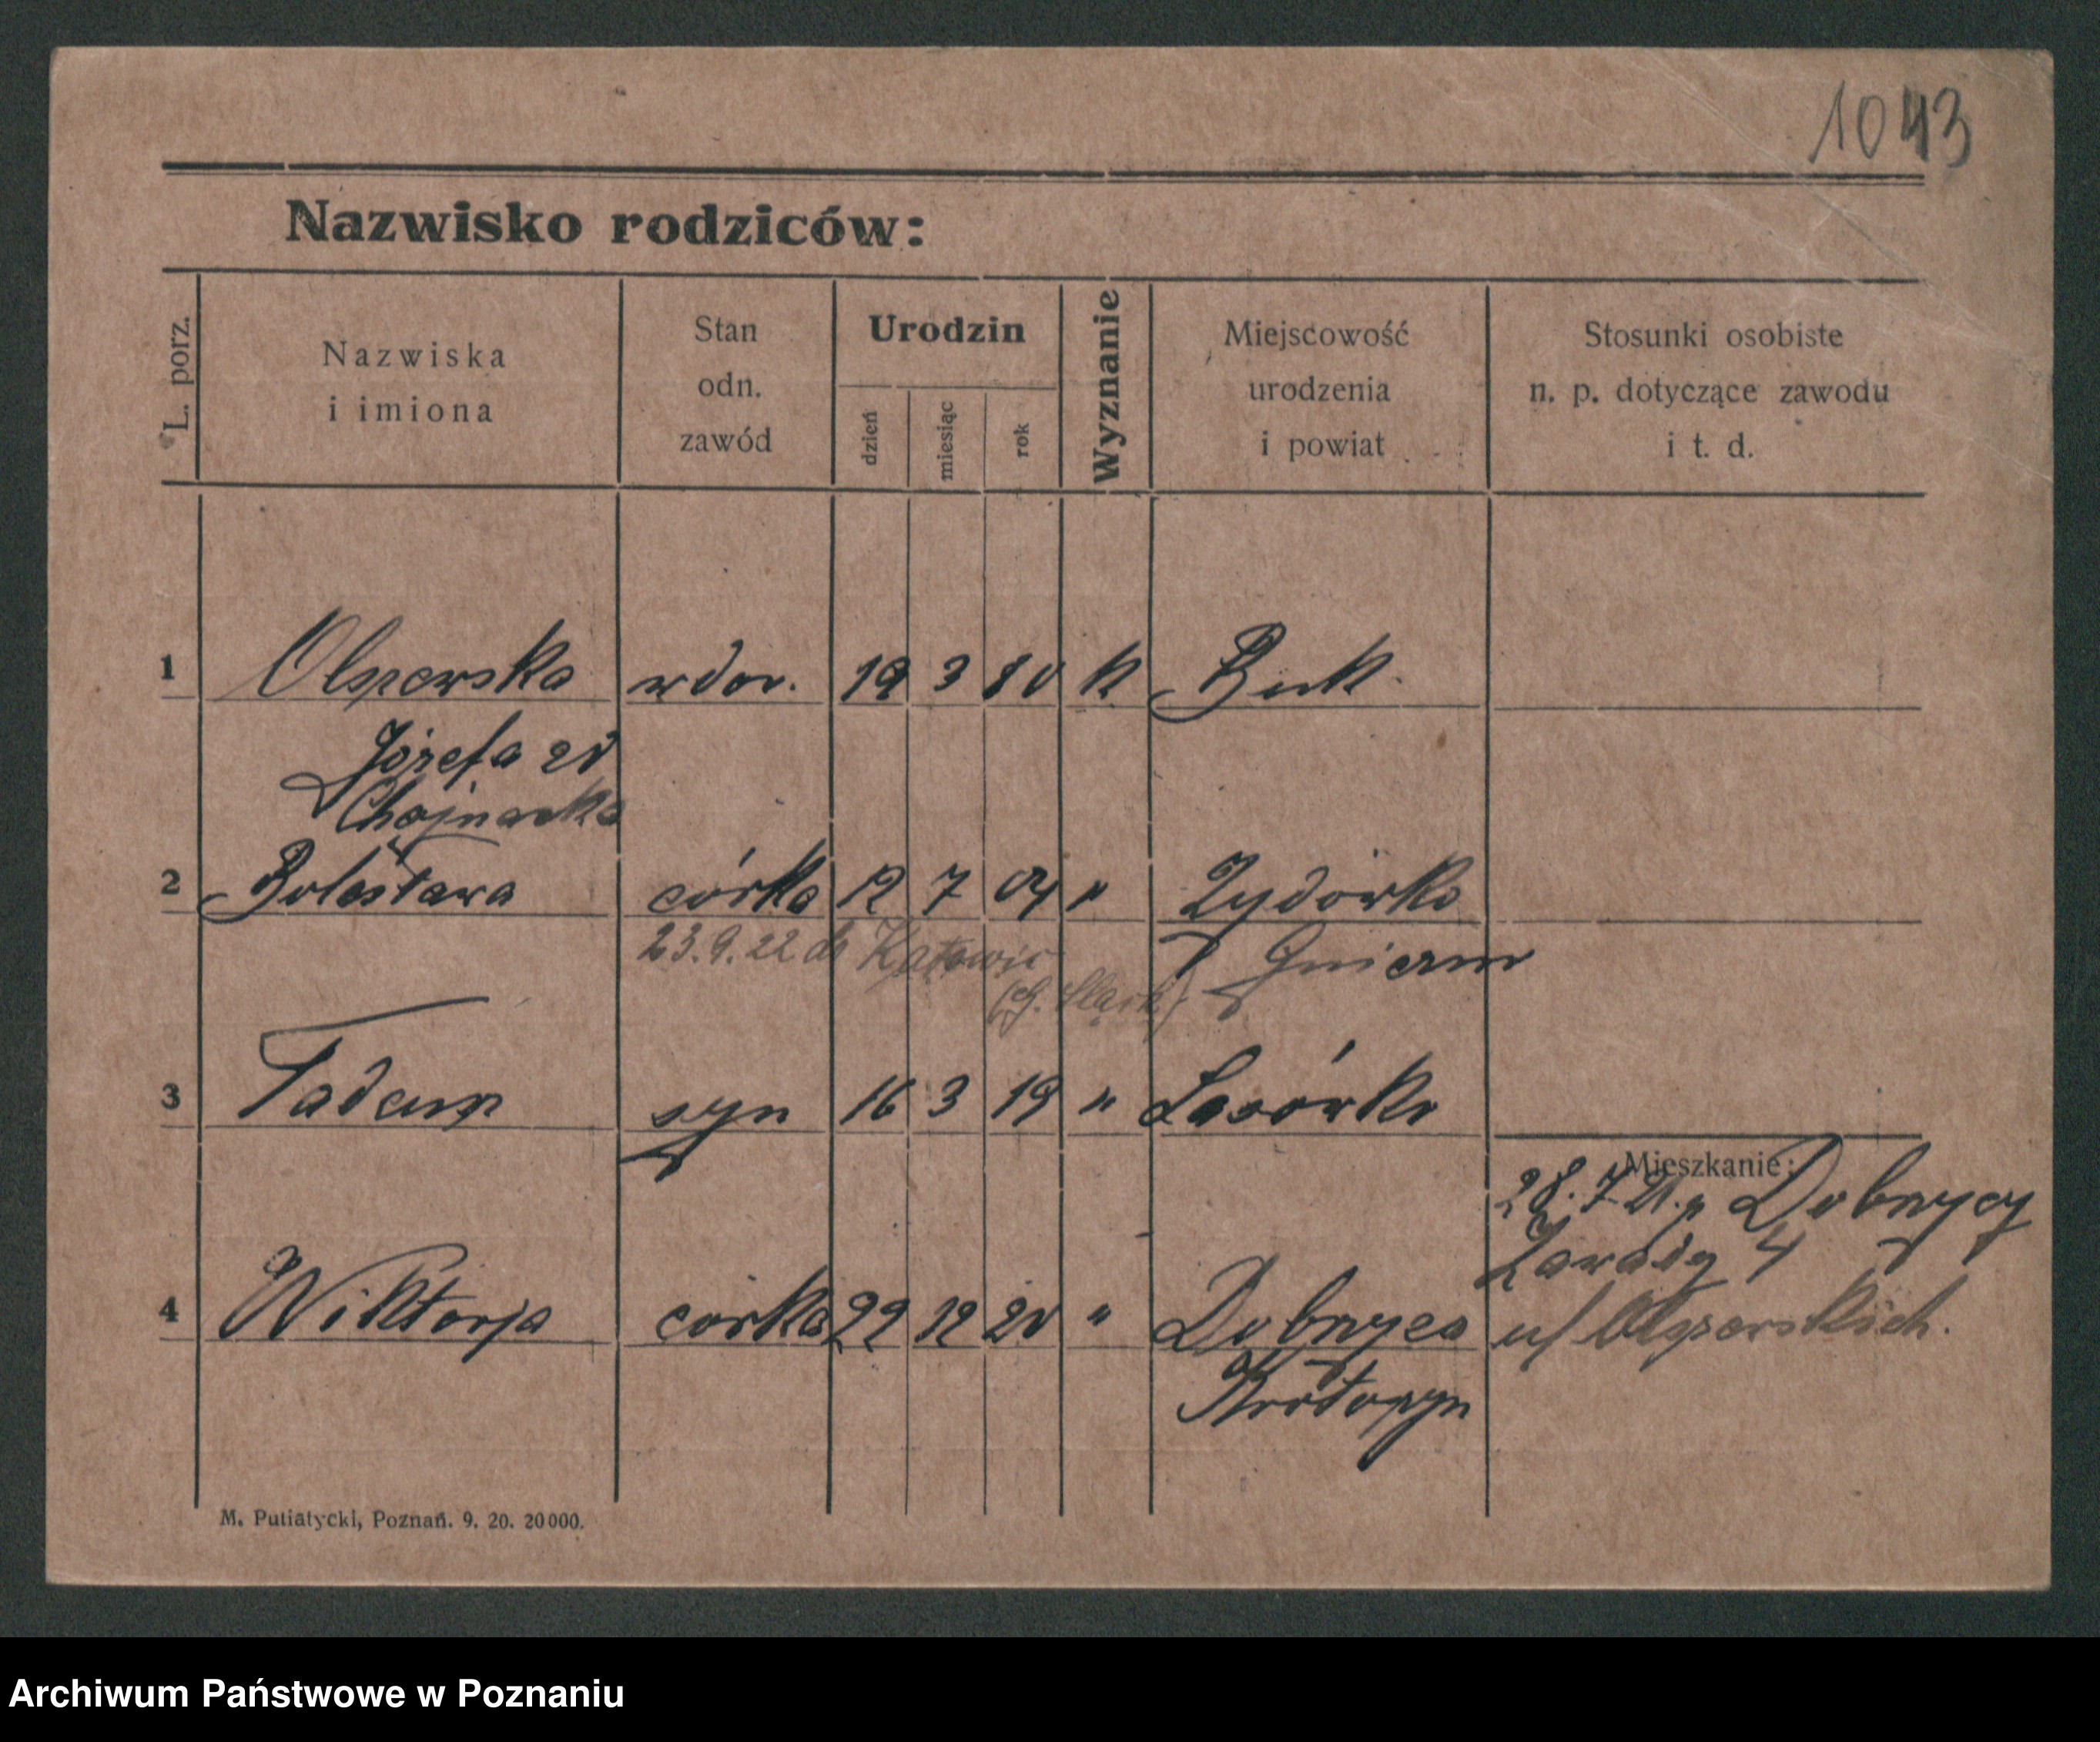 1043
Nazwisko rodziców:
L. porz.
Nazwiska
i imiona
Stan
odn.
zawód
Urodzin
dzień
miesiąc
rok
Wyznanie
Miejscowość
urodzenia
i powiat
Stosunki osobiste
n. p. dotyczące zawodu
i t. d.
1 Olszewska wdow. 19 3 80 k Buk.
Józefa zd
Chojnacka
2 Bolesława córka 12 7 04 " Żydówko
23.9.22 do Katowic
p Gniezno
(G. Śląsk)
3 Tadeusz syn 16 3 19 " Lasówki
Mieszkanie:
28.7 21. z Dobrzycy
Zawady 4
4 Wiktorja córka 22 12 20 " Dobrzyca
u/ Olszewskich.
Krotoszyn
M. Putiatycki, Poznań. 9. 20. 20000.
Archiwum Państwowe w Poznaniu